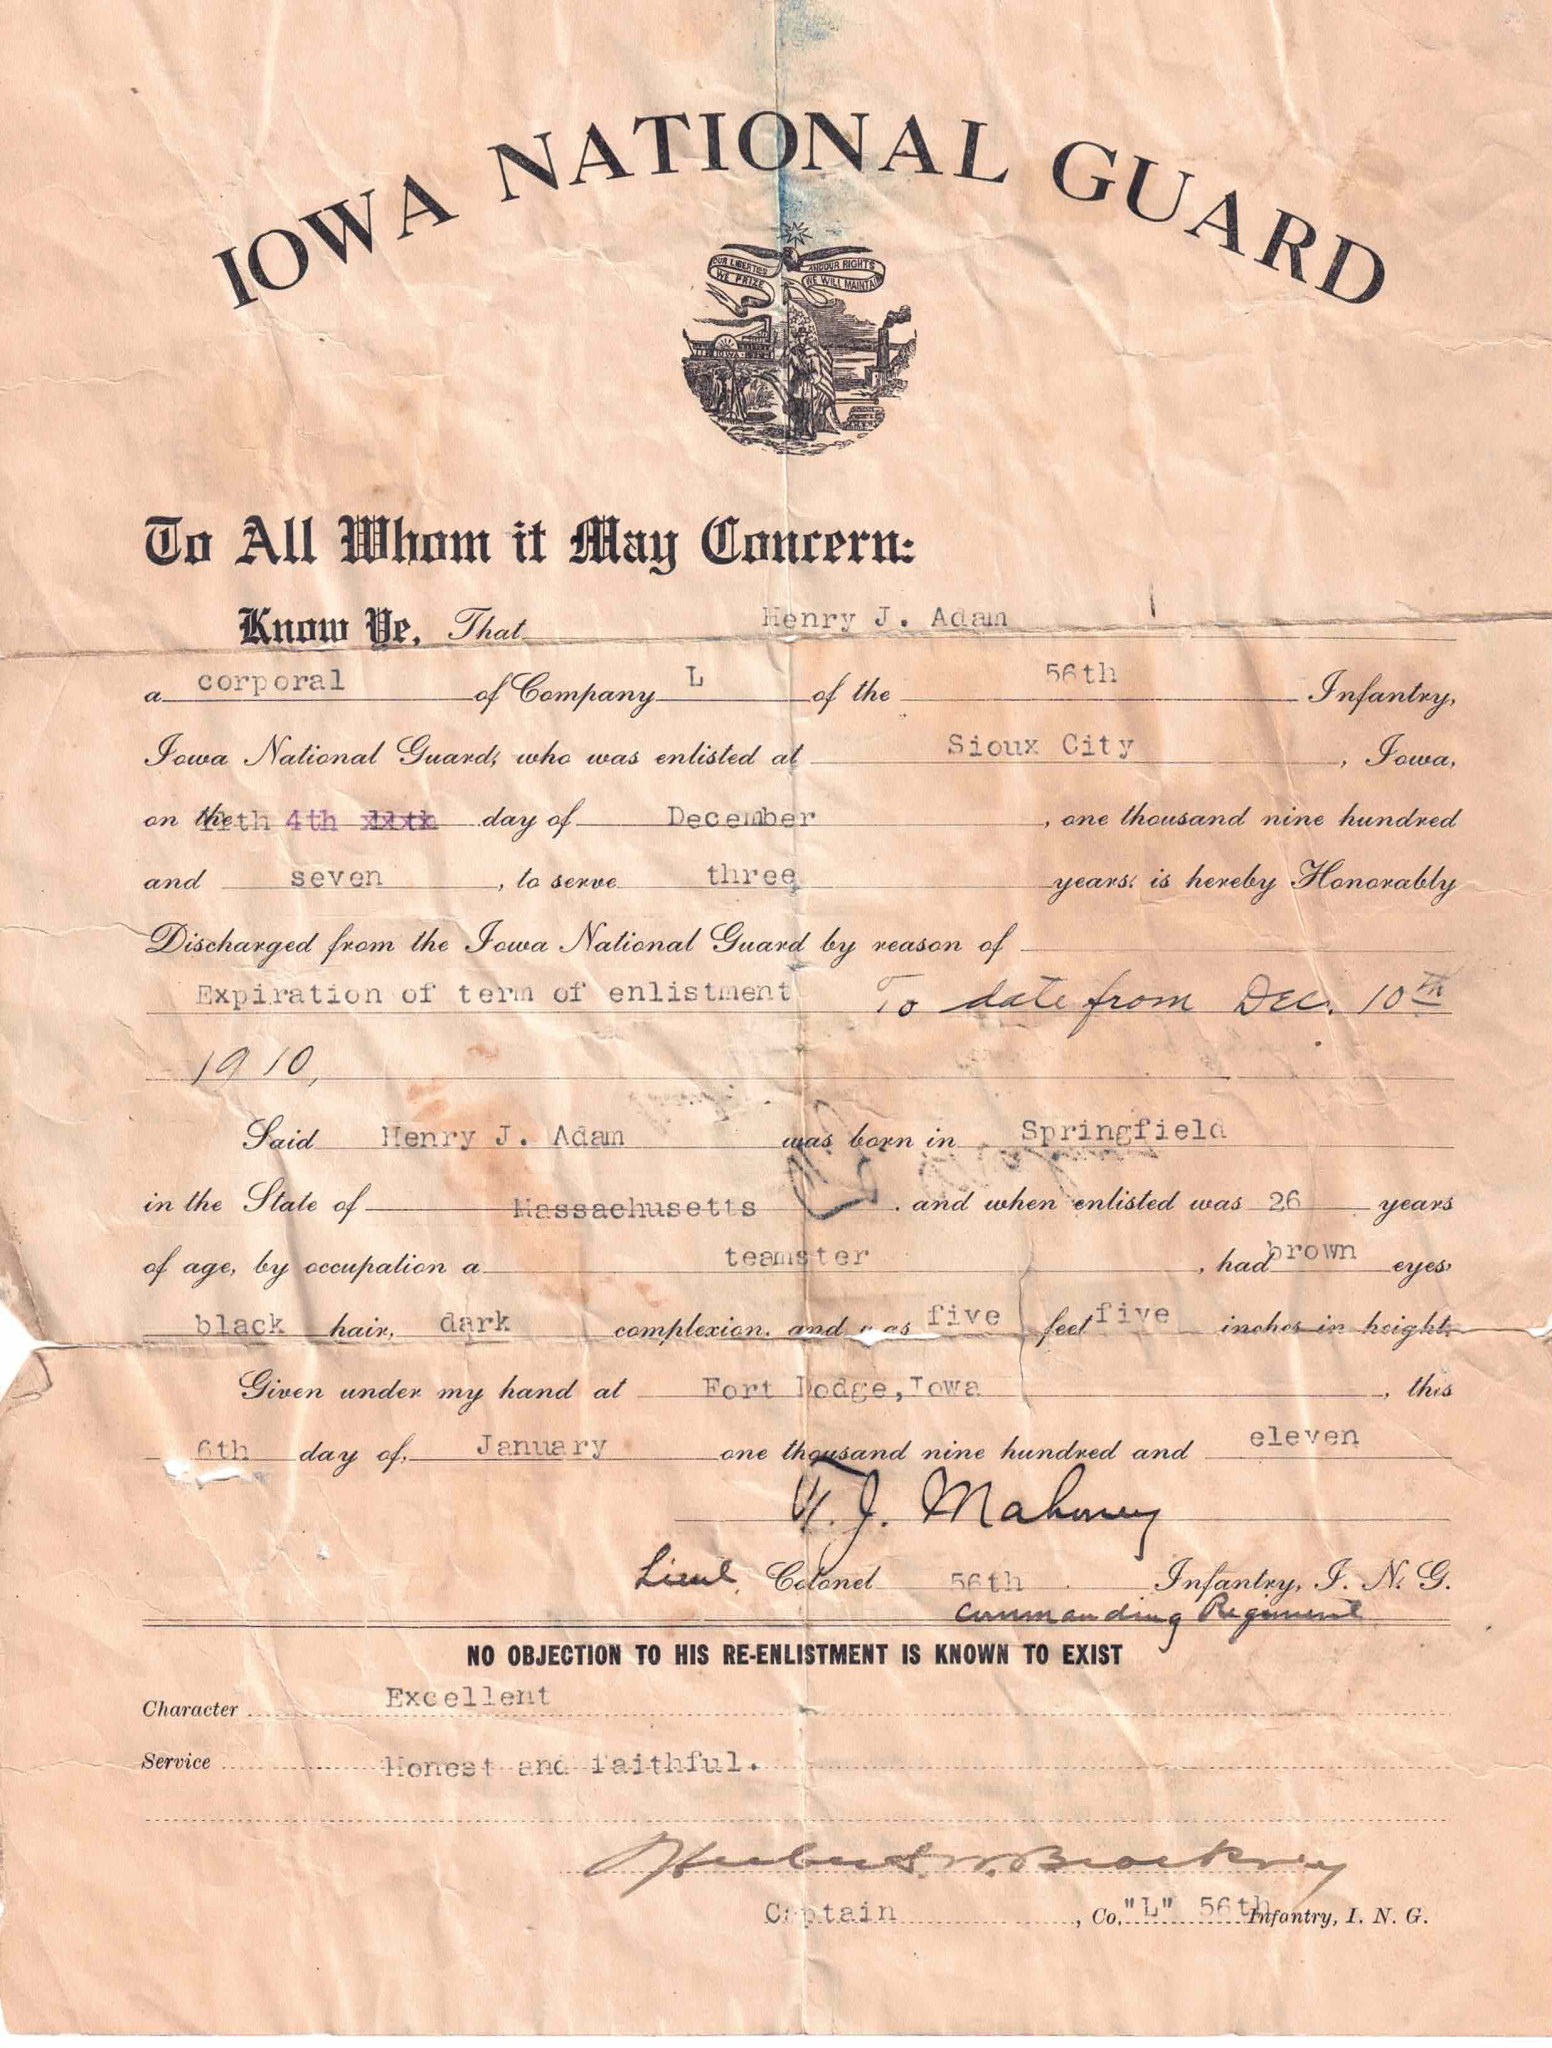 IOWA NATIONAL GUARD
OUR LIBERTIES WE PRIZE AND OUR RIGHTS WE WILL MAINTAIN
IOWA
To All Whom it May Concern:
Know Ye, That Henry J. Adam
a corporal of Company L of the 56th Infantry,
Iowa National Guard, who was enlisted at Sioux City, Iowa,
on the 11th 4th 11th day of December, one thousand nine hundred
and seven, to serve three years, is hereby Honorably
Discharged from the Iowa National Guard by reason of
Expiration of term of enlistment To date from Dec. 10th
1910,
Said Henry J. Adam was born in Springfield
in the State of Massachusetts, and when enlisted was 26 years
of age, by occupation a teamster, had brown eyes,
black hair, dark complexion, and was five feet five inches in height.
Given under my hand at Fort Dodge, Iowa, this
6th day of January one thousand nine hundred and eleven
J. Mahoney
Lieut. Colonel 56th Infantry, I. N. G.
Commanding Regiment
NO OBJECTION TO HIS RE-ENLISTMENT IS KNOWN TO EXIST
Character Excellent
Service Honest and faithful.
Captain, Co. "L" 56th Infantry, I. N. G.